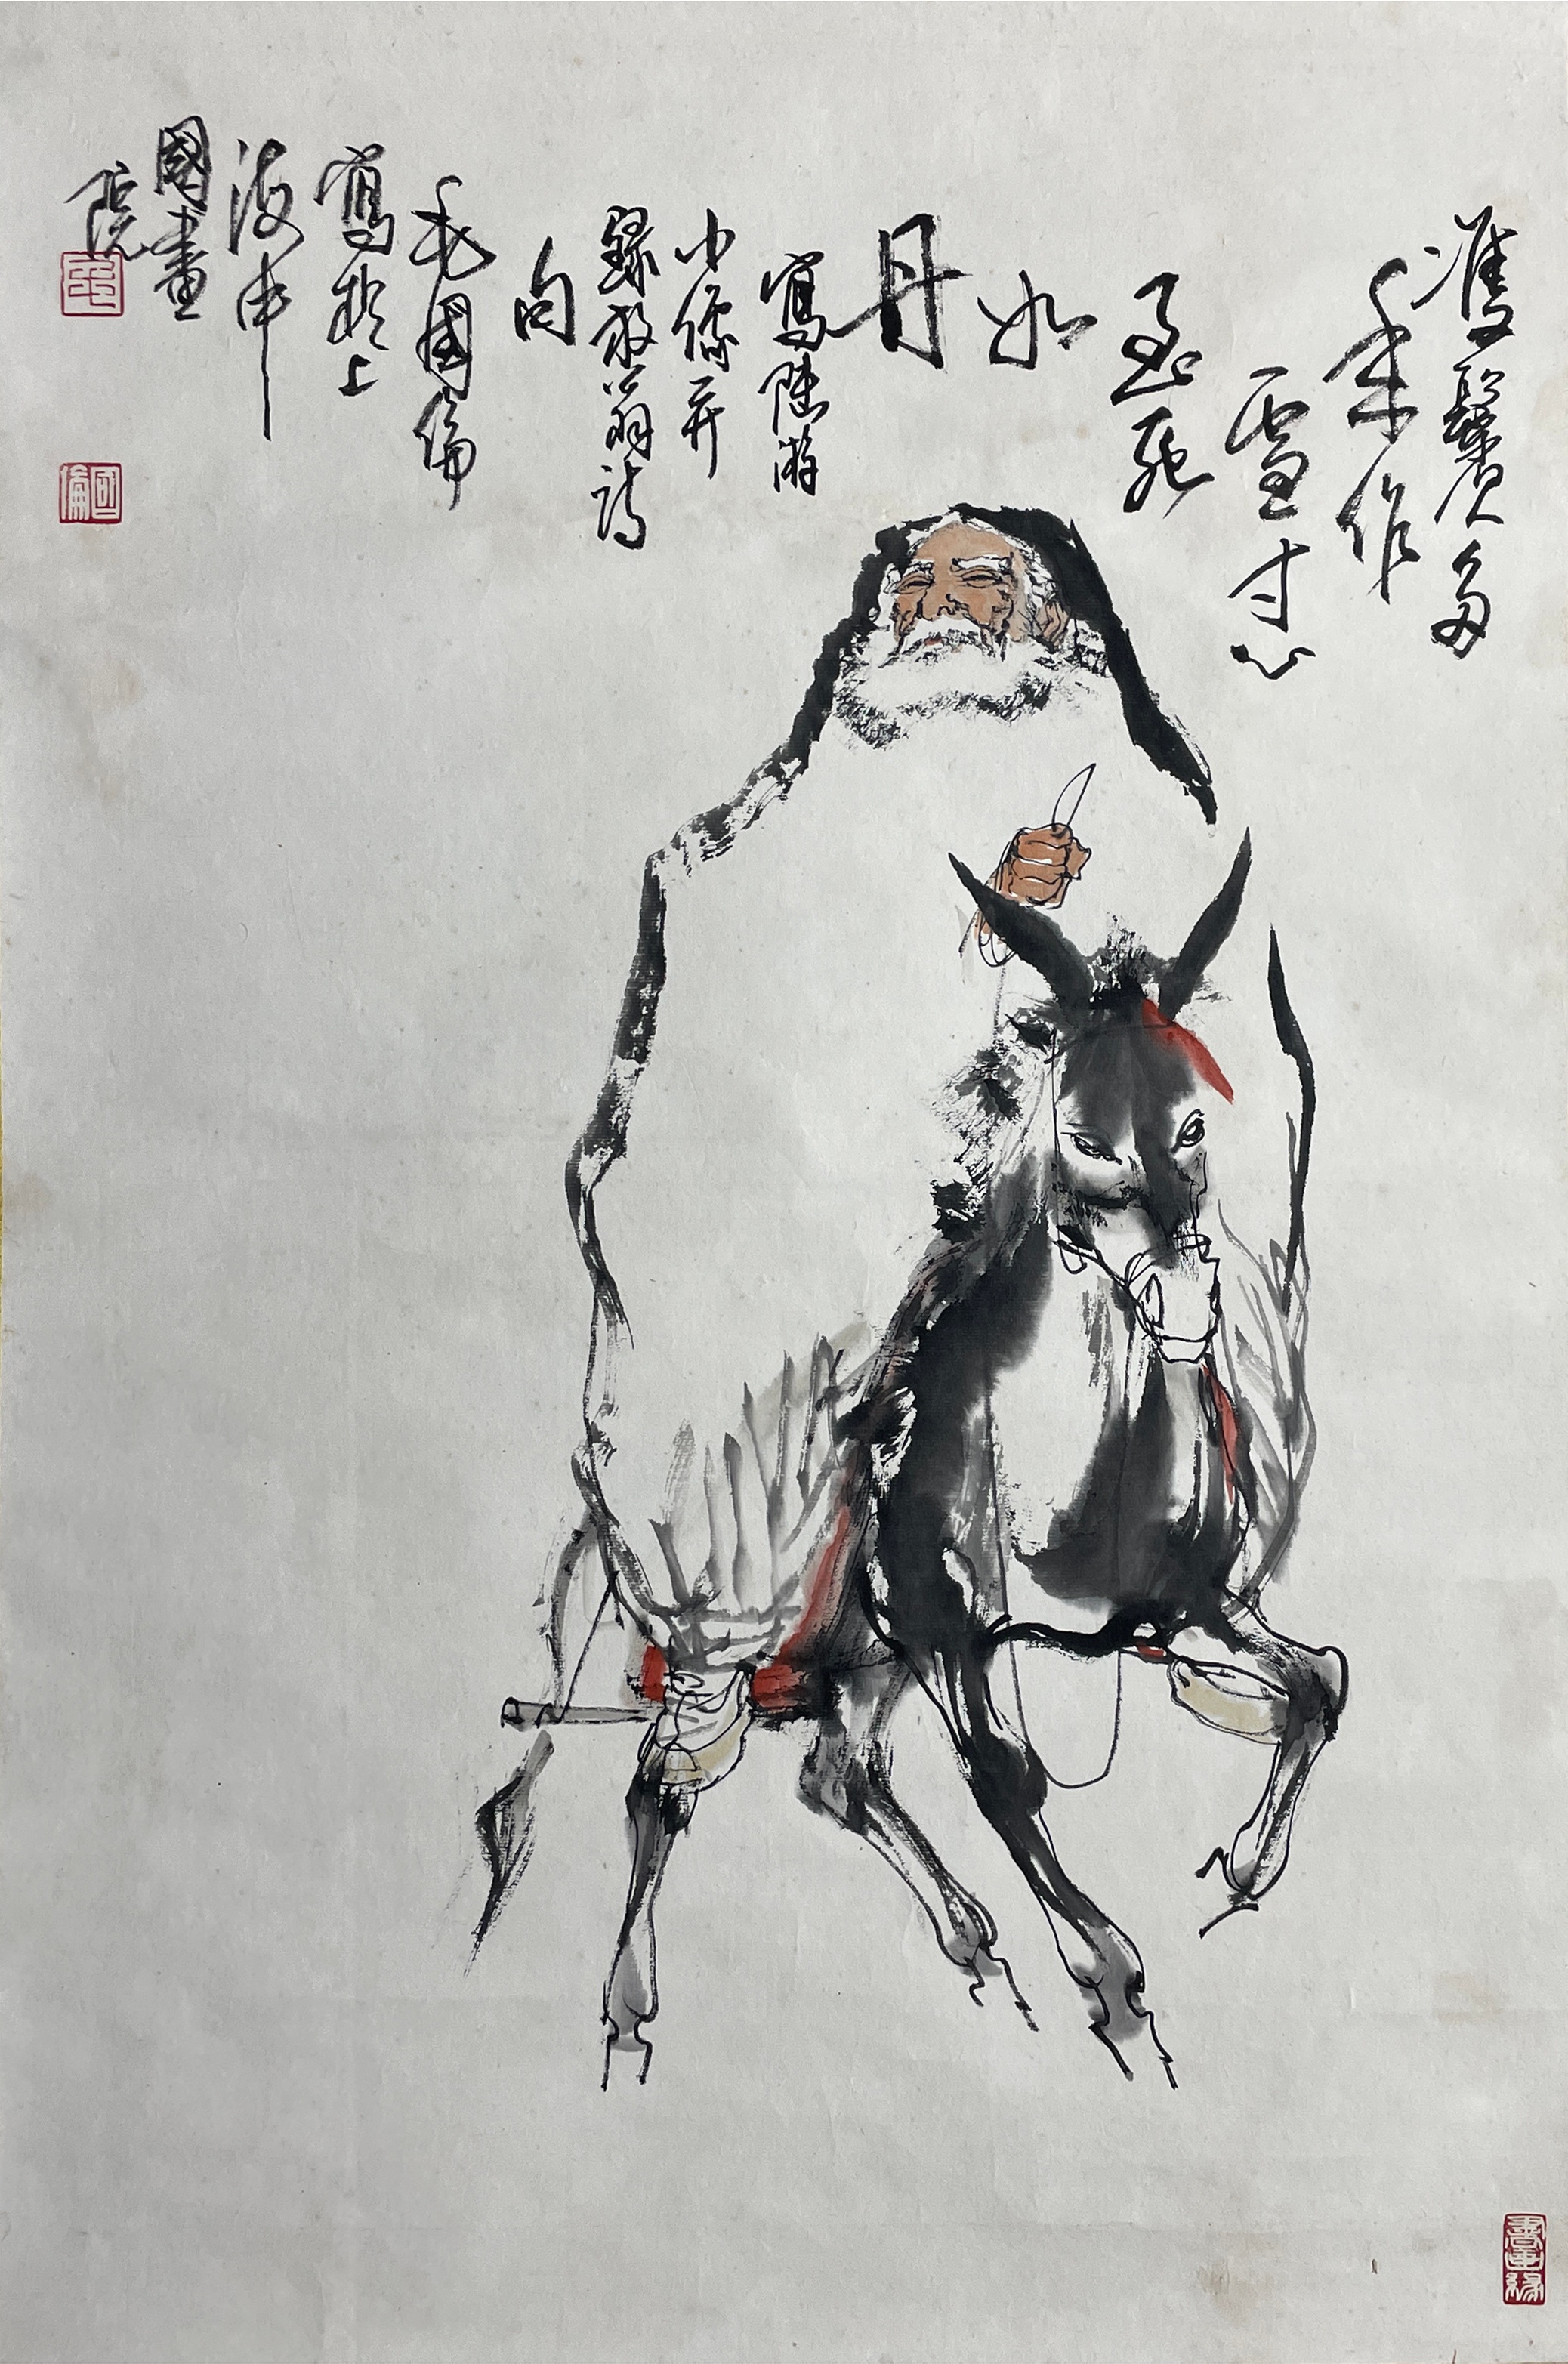 雙鬢多
年作
雪寸心
至死
如
丹
寫陸游
小像并
錄放翁詩
句
毛國倫
寫於上
海中
國畫
院
國倫
書畫緣